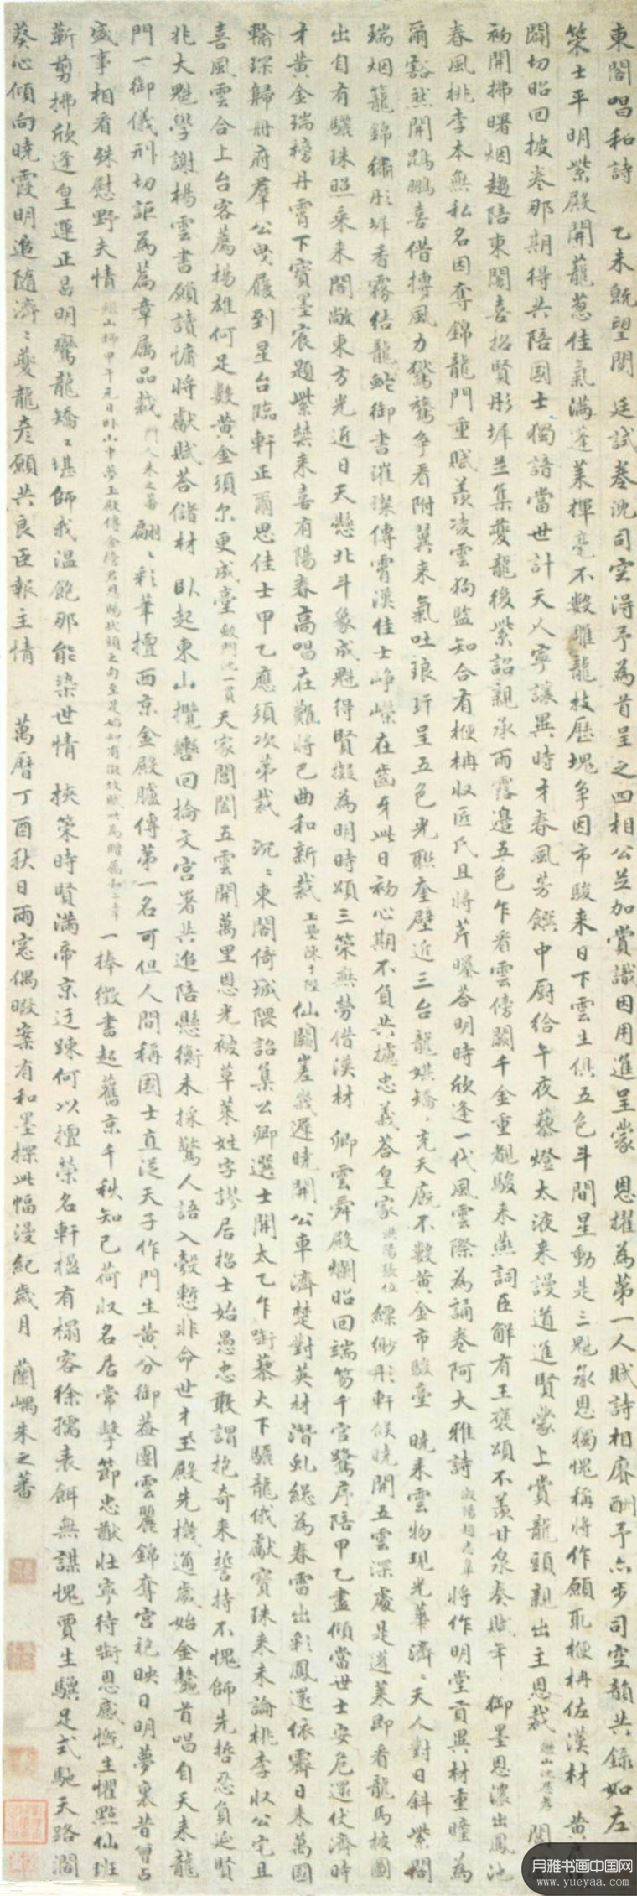 東閣唱和詩　乙未既望閱廷試卷沈司空得予為首呈之四相公並加賞識因用進呈蒙恩擢為第一人賦詩相賡酬予亦步司空韻共錄如左
策士平明紫殿開蘢蔥佳氣滿蓬萊揮毫不數雕龍技歷塊爭因市駿來日下雲土俱五色斗間星動是三魁承恩獨愧稱將作願取楩柟佐漢材　黃
闢切昭回披卷那期得共陪國士獨語當世計天人寧讓異時才春風芳饌中廚給午夜藜燈太液來謾道進賢蒙上賞龍頭親出主恩裁
初開拂曙烟趨陪東閣喜招賢彤墀並集夔龍後紫詔親承雨露邊五色乍看雲傍闕千金重覩駿來燕詞臣解有王褒頌不羨甘泉奏賦年　御墨恩濃出鳳池
春風桃李本無私名因奪錦龍門重賦羨凌雲狗監知合有楩柟收匠氏且將芹曝答明時欣逢一代風雲際為誦卷阿大雅詩　將作明堂貢異材重瞳為
爾豁然開鵾鵬喜借摶風力驚鶩爭看附翼來氣吐琅玕呈五色光聯奎壁近三台龍媒矯矯充天廄不數黃金市駿臺　曉來雲物現光華濟濟天人對日斜紫閣
瑞烟籠錦繡彤墀香霧結龍蛇御書璀璨傳霄漢佳士崢嶸在齒牙此日初心期不負共攄忠義答皇家　洪陽張位　縹緲彤軒候曉開五雲深處是蓬萊即看龍馬披圖
出自有驪珠照乘來閣敞東方光近日天懸北斗象成魁得賢擬為明時頌三策無勞借漢材　卿雲舜殿爛昭回端笏千官鷺序陪甲乙盡傾當世士安危還仗濟時
才黃金瑞榜丹霄下寶墨宸題紫禁來喜有陽春高唱在難將巴曲和新裁　玉壘陳于陛　仙闕嵳峩遲曉開公車濟楚對英材潛虬總為春雷出彩鳳還依霽日來萬國
輪琛歸冊府羣公曳履到星台臨軒正爾思佳士甲乙應須次第裁　沉沉東閣倚城隈詔集公卿選士開太乙乍衝藜火下驪龍俄獻寶珠來未論桃李收公宅且
喜風雲合上台客薦楊雄何足數黃金須尔更成臺　天家閶闔五雲開萬里恩光被草萊姓字謬居招士始愚忠敢謂抱奇來誓持不愧師先哲忍負延賢
兆大魁學謝楊雲書願讀慵將獻賦答儲材　卧起東山攬轡回掄文宮署共追陪懸衡未採驚人語入彀慙非命世才玉殿先機通歲始金鰲首唱自天來龍
門一御儀刑切詎為篇章属品裁　門人朱之蕃　翩翩彩筆擅西京金殿臚傳第一名可但人間稱國士直從天子作門生黃分御蓋團雲麗錦奪宮袍映日明夢裏昔曾占
盛事相看殊慰野夫情　一捧徵書起舊京千秋知己荷收名居常擊節忠猷壯寧待銜恩感慨生懼點仙班
蘄剪拂欣逢皇運正昌明鸞龍矯矯堪師我溫飽那能染世情　挾策時賢滿帝京迂踈何以擅榮名軒楹有榻容徐孺表餌無謀愧賈生驥足式馳天路濶
葵心傾向曉霞明追隨濟濟夔龍彥願共良臣報主情　萬曆丁酉秋日雨窓偶暇案有和墨探此幅漫紀歲月　蘭嵎朱之蕃
月雅书画中国网
www.yueyaa.com